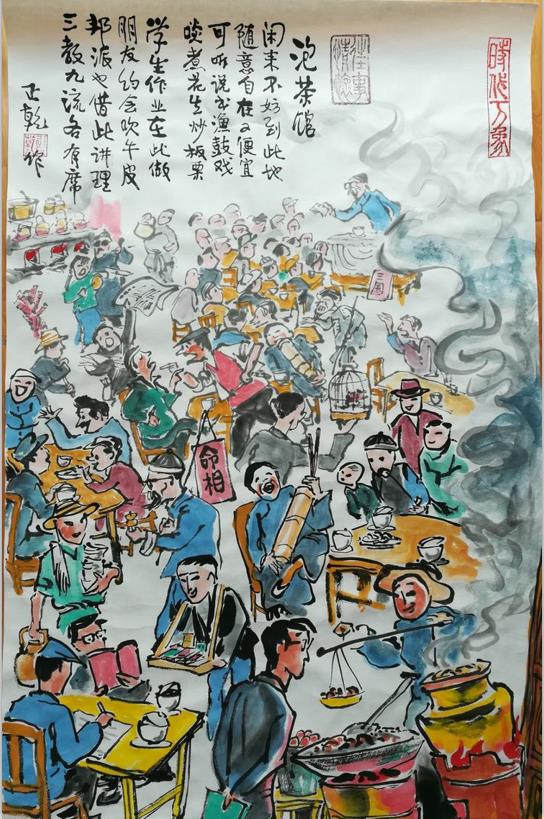 時代万象
泡茶馆
闲来不妨到此地
随意自在又便宜
可听说书渔鼓戏
啖煮花生炒板栗
学生作业在此做
朋友约会吹牛皮
邦派也借此讲理
三教九流各有席
正乾作
三国
命相